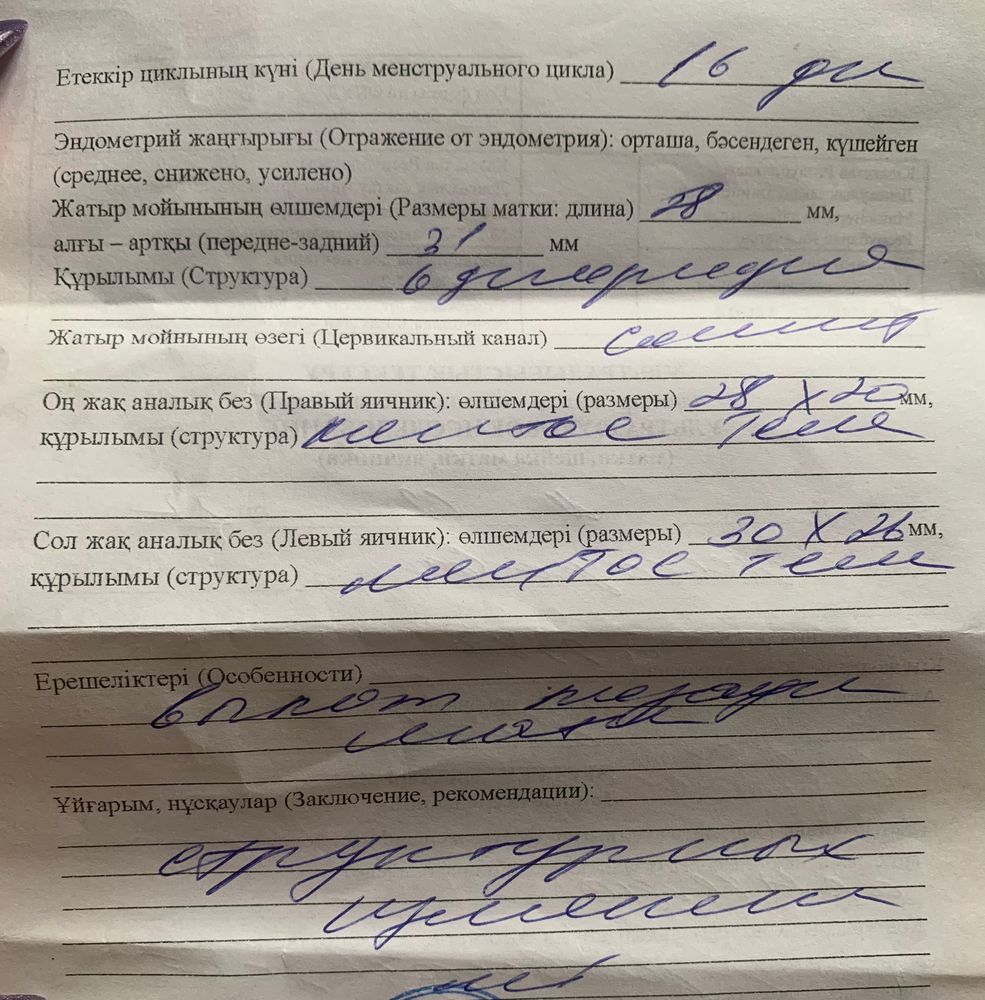 Етеккір циклының күні (День менструального цикла) 16 дн
Эндометрий жаңғырығы (Отражение от эндометрия): орташа, бәсендеген, күшейген
(среднее, снижено, усилено)
Жатыр мойынының өлшемдері (Размеры матки: длина) 28 мм,
алғы – артқы (передне-задний) 31 мм
Құрылымы (Структура)
Жатыр мойнының өзегі (Цервикальный канал) сомкнут
Оң жақ аналық без (Правый яичник): өлшемдері (размеры) 28 х 20 мм,
құрылымы (структура)
Сол жақ аналық без (Левый яичник): өлшемдері (размеры) 30 х 26 мм,
құрылымы (структура)
Ерешеліктері (Особенности)
выпот позади
матки
Ұйғарым, нұсқаулар (Заключение, рекомендации):
структурных
изменений
нет